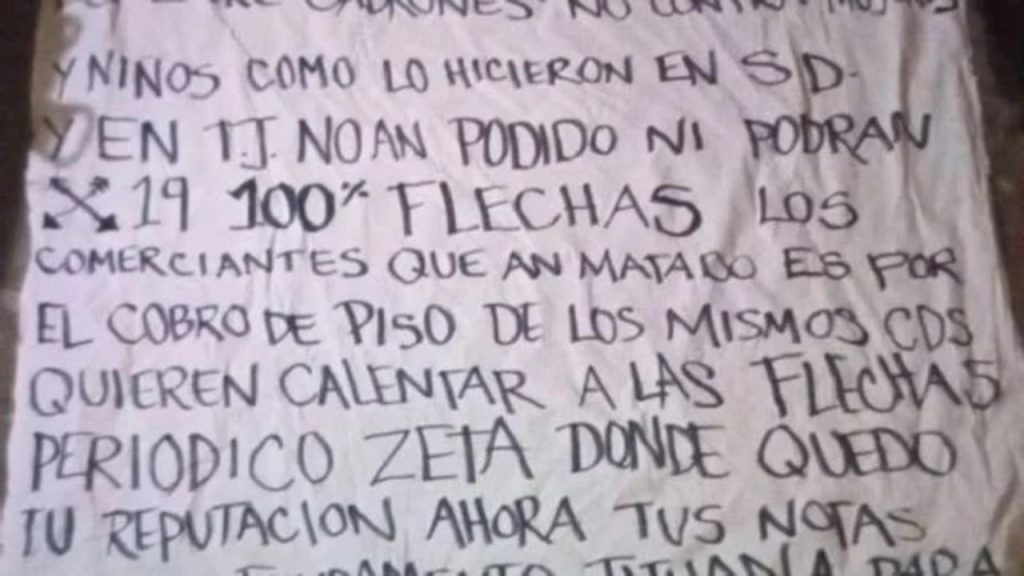 NO CONTRA MUJERES
Y NINOS COMO LO HICIERON EN S/D-
Y EN T.J. NO AN PODIDO NI PODRAN
19 100% FLECHAS LOS
COMERCIANTES QUE AN MATADO ES POR
EL COBRO DE PISO DE LOS MISMOS CDS
QUIEREN CALENTAR A LAS FLECHAS
PERIODICO ZETA DONDE QUEDO
TU REPUTACION AHORA TUS NOTAS
PARA